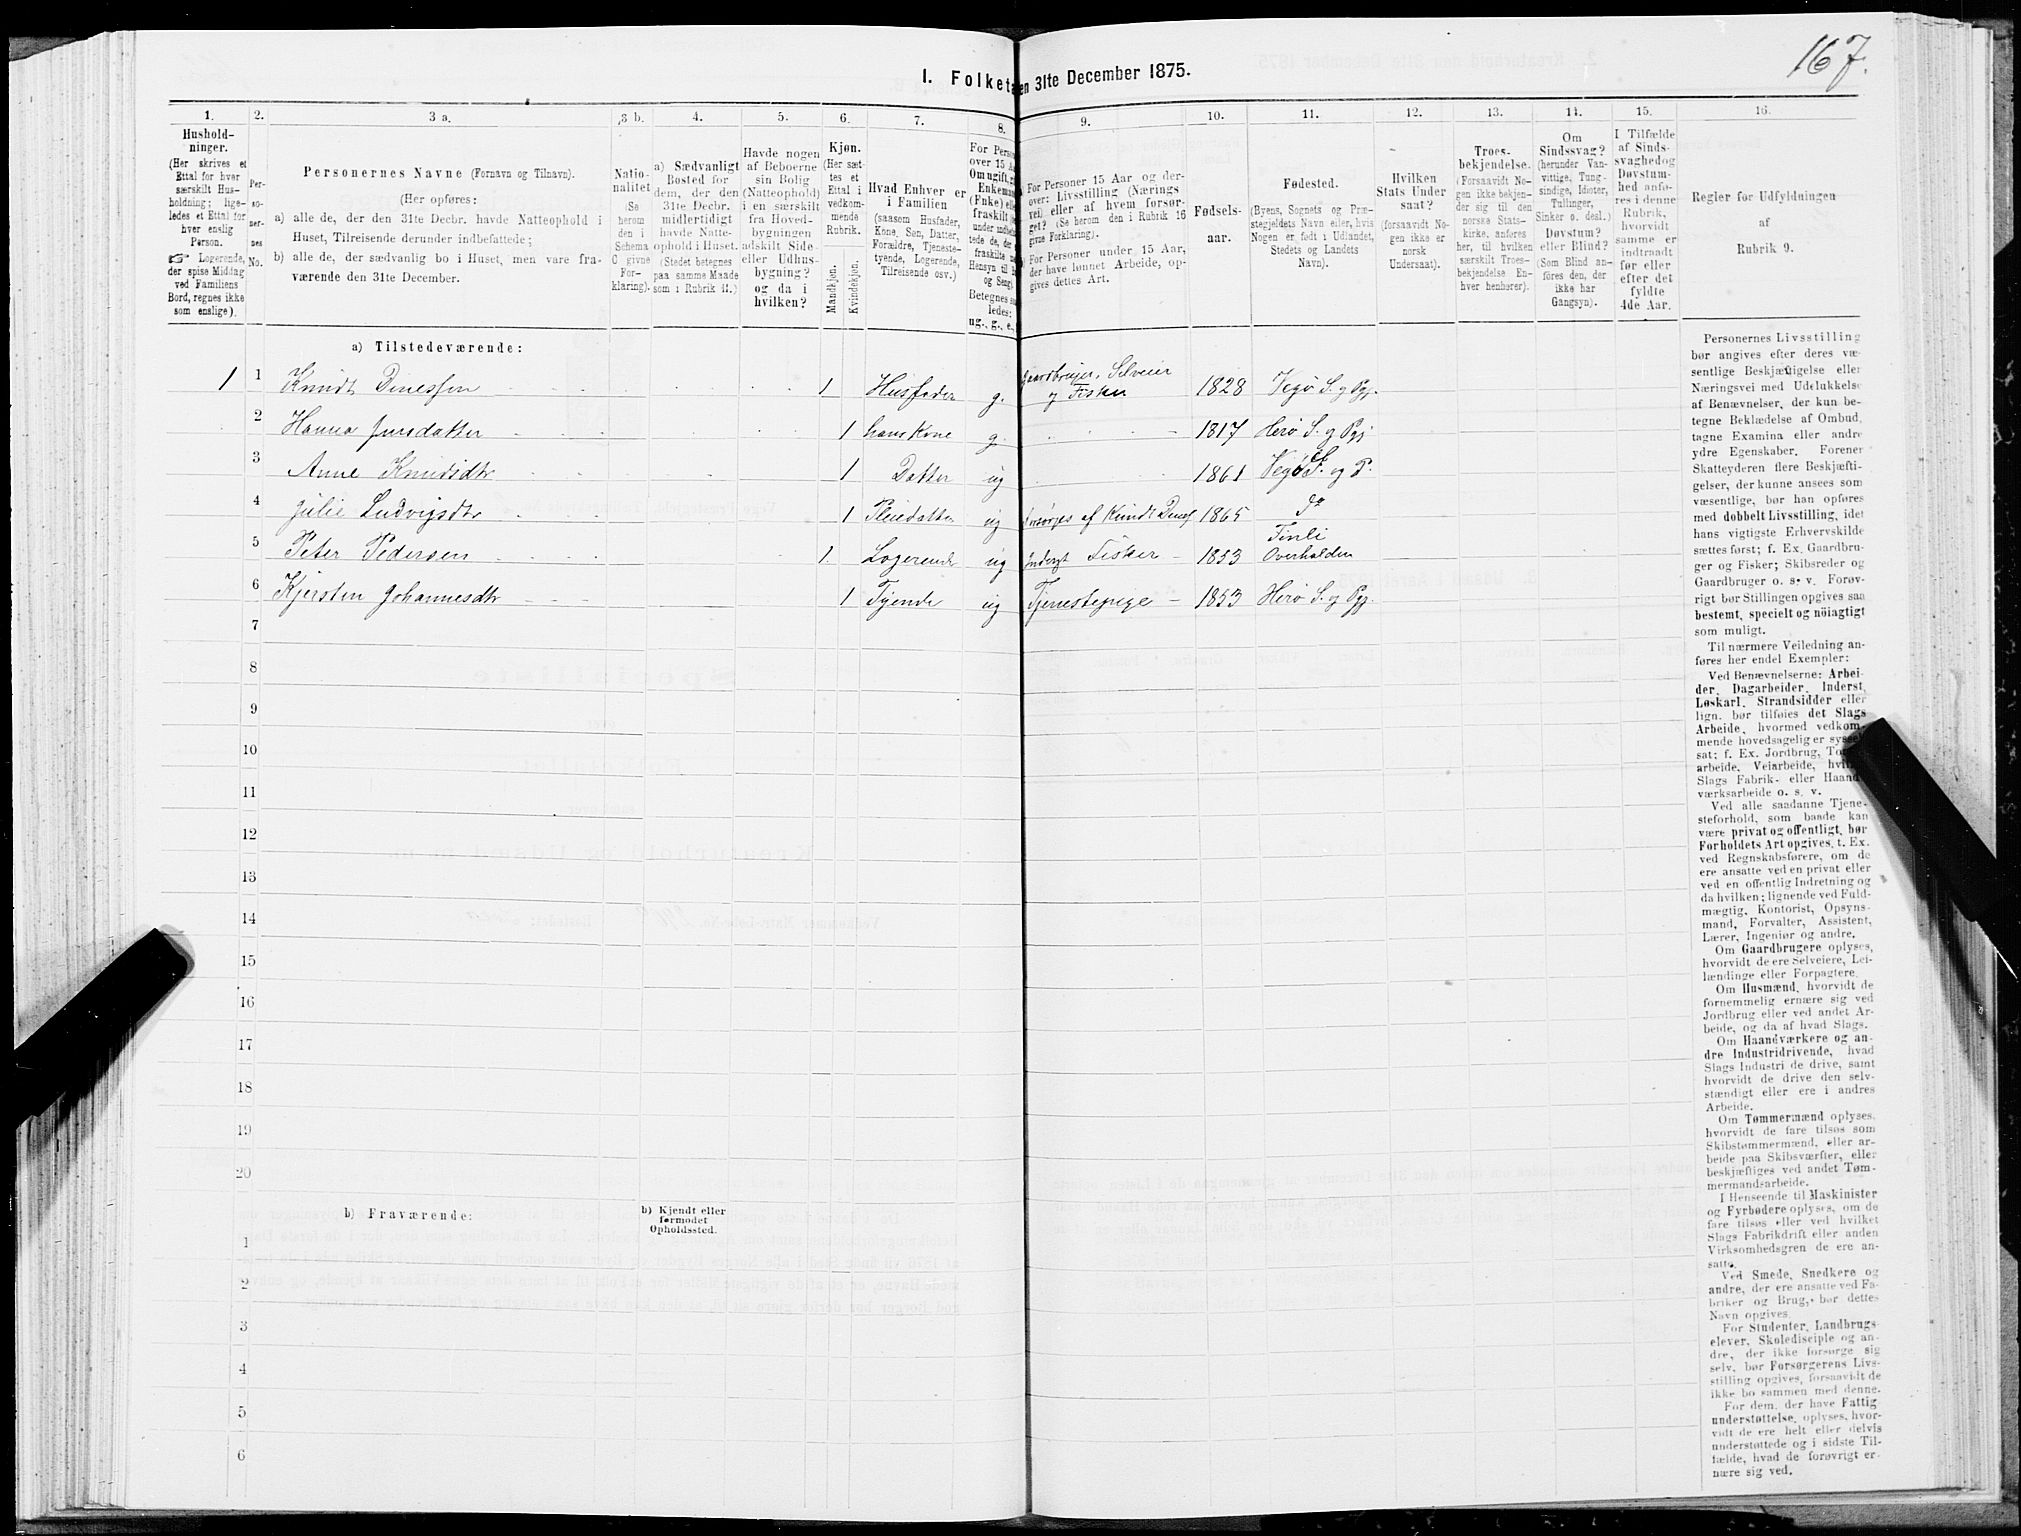 167.
I. Folketa en 31te December 1875.
1. 2. 3 a. 3 b. 4. 5. 6. 7. 8. 9. 10. 11. 12. 13. 14. 15. 16.
Hushold-
ninger.
(Her skrives et
Ettal for hver
særskilt Hus-
holdning; lige-
ledes et Ettal for
hver enslig
Person.
☞ Logerende,
der spise Middag
ved Familiens
Bord, regnes ikke
som enslige).
Per-
so-
ner-
nes
No.
Personernes Navne (Fornavn og Tilnavn).
(Her opføres:
a) alle de, der den 31te Decbr. havde Natteophold i
Huset, Tilreisende derunder indbefattede;
b) alle de, der sædvanlig bo i Huset, men vare fra-
værende den 31te December.
Natio-
nalitet
(Se
herom
den i
Schema
C givne
For-
klaring).
a) Sædvanligt
Bosted for
dem, der den
31te Decbr.
midlertidigt
havde Natte-
ophold i Huset.
(Stedet betegnes
paa samme Maade
som i Rubrik 11.)
Havde nogen
af Beboerne
sin Bolig
(Natteophold)
i en særskilt
fra Hoved-
bygningen
adskilt Side-
eller Udhus-
bygning?
og da i
hvilken?
Kjøn.
(Her sæt-
tes et
Ettal i
vedkom-
mende
Rubrik.
Mandkjøn.
Kvindekjøn.
Hvad Enhver er
i Familien
(saasom Husfader,
Kone, Søn, Datter,
Forældre, Tjeneste-
tyende, Logerende,
Tilreisende osv.)
For Person
over 15 Aa
Om ugift, g
Enkeman
(Fnke) elle
fraskilt
under indbe
tede de, der
fraskilte
Hensyn til
og Seng).
Betegnes saa
ledes:
ug., g., e.,
For Personer 15 Aar og der-
over: Livsstilling (Nærings
vei) eller af hvem forsør-
get? (Se herom den i Rubrik 16
givne Forklaring).
For Personer under 15 Aar,
der have lønnet Arbeide, op-
gives dettes Art.
Fødsels-
aar.
Fødested.
(Byens, Sognets og Præ-
stegjeldets Navn eller, hvis
Nogen er født i Udlandet,
Stedets og Landets
Navn).
Hvilken
Stats Under
saat?
(forsaavidt No-
gen ikke er
norsk
Undersaat).
Troes-
bekjendelse.
(Forsaavidt No-
gen ikke bekjen-
der sig til den
norske Stats-
kirke, anføres
her, til hvilken
særskilt Troes-
bekjendelse En-
hver henhører).
Om
Sindssvag?
(herunder Van-
vittige, Tung-
sindige, Idioter,
Tullinger,
Sinker o. desl.)
Døvstum?
eller Blind?
(Som Blind an-
føres den, der
ikke har
Gangsyn).
I Tilfælde
af Sinds-
svaghed og
Døvstum-
hed anfø-
res i denne
Rubrik,
hvorvidt
samme er
indtraadt
før eller
efter det
fyldte
4de Aar.
Regler for Udfyldningen
af
Rubrik 9.
a) Tilstedeværende:
1 1 Knudt Dinessen 1 Husfader g. Gaardbruger, Selveier
og Fisker 1828 Vegø S. og Pgj.
2 Hanna Jensdatter 1 hans Kone g. 1817 Herø S. og Pgj
3 Anne Knudsdtr 1 Datter ug 1861 Vegø S. og P.
4 Julie Ludvigsdtr 1 Pleiedatter ug forsørges af Knudt Dinesf 1865 do
5 Peter Pedersen 1. Logerende ug Inderst Fisker 1853
Overhalden
6 Kjersten Johannesdtr 1 Tyende ug Tjenestepige 1853 Herø S. og Pgj.
7
8
9
10
11
12
13
14
15
16
17
18
19
20
b) Fraværende:
b) Kjendt eller
formodet
Opholdssted.
1
2
3
4
5
6
Personernes Livsstilling
bør angives efter deres væ-
sentlige Beskjæftigelse eller
Næringsvei med Udelukkelse
af Benævnelser, der kun be-
tegne Beklædelse af Ombud,
tagne Examina eller andre
ydre Egenskaber. Forener
Skatteyderen flere Beskjæfti-
gelser, der kunne ansees som
væsentlige, bør han opføres
med dobbelt Livsstilling, idet
hans vigtigste Erhvervskilde
sættes først; f. Ex. Gaardbru-
ger og Fisker; Skibsreder og
Gaardbruger o. s. v. Forøv-
rigt bør Stillingen opgives saa
bestemt, specielt og nöiagtigt
som muligt.
Til nærmere Veiledning an-
føres her endel Exempler:
Ved Benævnelserne: Arbei-
der, Dagarbeider, Inderst,
Løskarl, Strandsidder eller
lign. bør tilføies det Slags
Arbeide, hvormed vedkom-
mende hovedsagelig er syssel
sat; f. Ex. Jordbrug, To
arbeide, Veiarbeide, hvi
Slags Fabrik- eller Haand
værksarbeide o. s. v.
Ved alle saadanne Tjene-
steforhold, som baade kan
være privat og offentligt, bør
Forholdets Art opgives, t. Ex.
ved Regnskabsførere, om de
ere ansatte ved en privat eller
ved en offentlig Indretning og
da hvilken; lignende ved Fuld-
mægtig, Kontorist, Opsyns-
mand, Forvalter, Assistent,
Lærer, Ingeniør og andre.
Om Gaardbrugere oplyses,
hvorvidt de ere Selveiere, Lei-
lændinge eller Forpagtere.
Om Husmænd, hvorvidt de
fornemmelig ernære sig ved
Jordbrug eller ved andet Ar-
beide, og da af hvad Slags.
Om Haandværkere og an-
dre Industridrivende, hvad
Slags Industri de drive, samt
hvorvidt de drive den selv-
stændigt eller ere i andres
Arbeide.
Om Tømmermænd oplyses,
hvorvidt de fare tilsøs som
Skibstømmermænd, eller ar-
beide paa Skibsværfter, eller
beskjæftiges ved andet Tøm-
mermandsarbeide.
I Henseende til Maskinister
og Fyrbødere oplyses, om de
fare tilsøs eller ved hvilket
Slags Fabrikdrift eller anden
Virksomhedsgren de ere an-
satte.
Ved Smede, Snedkere og
andre, der ere ansatte ved Fa-
briker og Brug, bør dettes
Navn opgives.
For Studenter, Landbrugs-
elever, Skoledisciple og an-
dre, der ikke forsørge sig
selv, bør Forsørgerens Livs-
stilling opgives, forsaavidt de
ikke bo sammen med denne.
For dem, der have Fattig
understøttelse, oplyses, hvor-
vidt de ere helt eller delvis
understøttede og i sidste Til-
fælde, hvad de forøvrigt er-
nære sig ved.